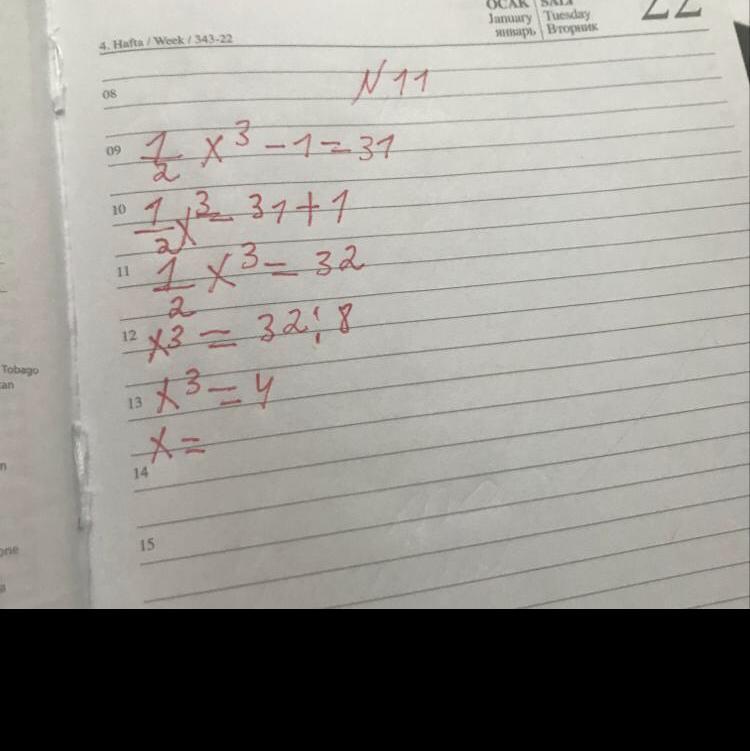 OCAK SALI
January Tuesday
январь Вторник
22
4. Hafta / Week / 343-22
N 11
08
09 1/2 x³ - 1 = 31
10 1/2 x³ = 31 + 1
11 1/2 x³ = 32
12 x³ = 32 : 8
13 x³ = 4
x =
14
15
Tobago